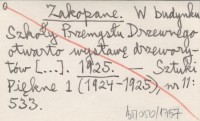 Zakopane. W budynku
Szkoły Przemysłu Drzewnego
otwarto wystawę drzewory-
tów [...]. 1925. — Sztuki
Piękne 1 (1924-1925) nr 11:
533.